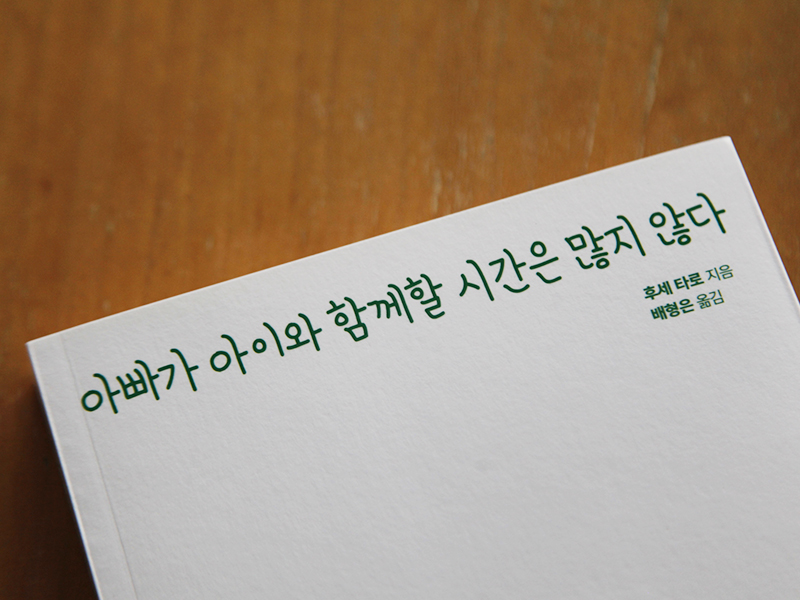 아빠가 아이와 함께할 시간은 많지 않다
후세 타로 지음
배형은 옮김